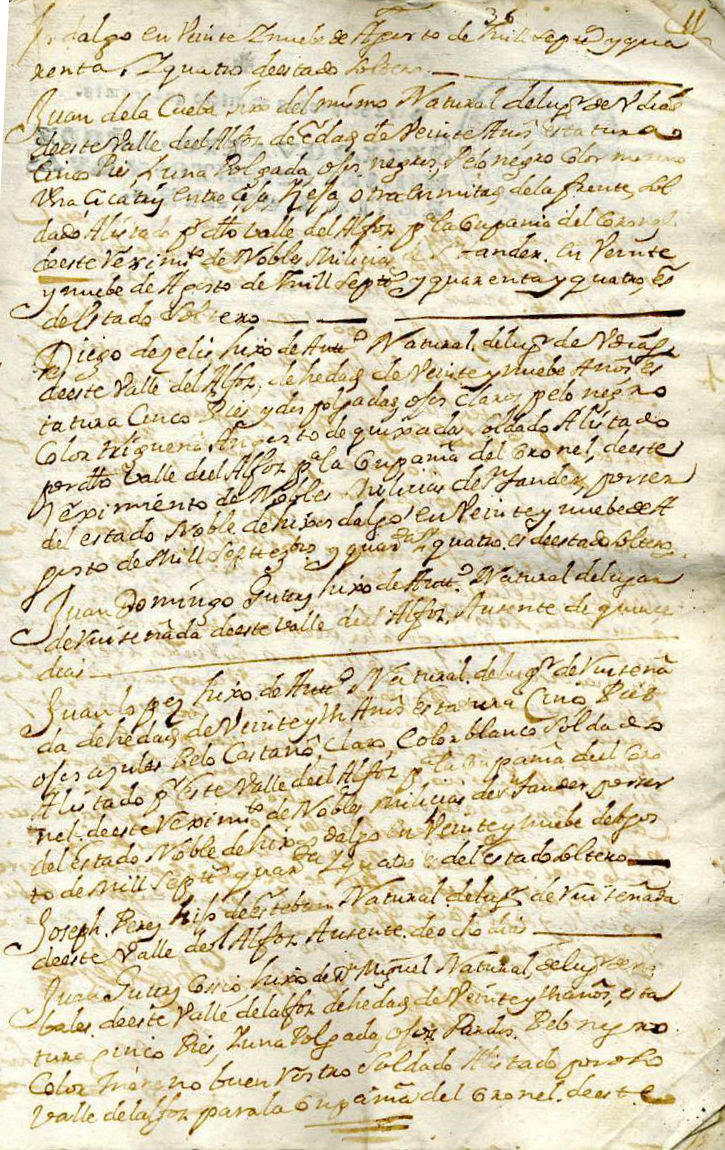 36 11
hidalgo en Veinte Znuebe de Agosto de Mill Septs y qua
renta, Zquatro deestado soltero
Juan dela Cueba hixo del mismo Natural delugr de Vdias
deeste Valle deel Alfoz de Edad de Veinte Ans estatura
Cinco Pies Zuna Polgada ojos negros, Pelo negro Color moreno
Vna Cicatriz entre Ceja, Zeja, otra en mitad dela frente, Sol
dado Alistado pr dho valle del Alfoz pa la Conpania del Coronel
deeste Reximto de Nobles Milicias de Santander. en Veinte
y nuebe de Agosto de Mill Septs y quarenta y quatro, es
de Estado Soltero
Diego dezelis hixo de Antto Natural delugr de Vdias
deeste Valle del Alfoz, de hedad de Veinte y nuebe Años es
tatura Cinco Pies y dos polgadas, ojos Claros pelo negro
Color trigueño Angosto de quixada Soldado Alistado
por dho Valle deel Alfoz pa la Conpama del Coronel, deeste
Reximiento de Nobles Milicias de Stander, por ser
del estado Noble de hixos dalgo en Veinte y nuebe de A
gosto de Mill Settezos y quarta Zquatro es deestado soltero
Juan Domingo Guttz hixo de Antto Natural delugar
de Vuiseñada deeste Valle deel Alfoz, Ausente de quince
dias
Juan lopez hixo de Antto Natural delugr de Vuiseña
da de hedad de Veinte y Vn Años estatura Cinco Pies
ojos azules Pelo Castaño Claro, Color blanco Soldado
Alistado pr este Valle deel Alfoz pa la Conpama deel Coro
nel. deeste Reximto de Nobles Milicias de Stander por ser
del estado Noble de hixos dalgo en Veinte y nuebe de Agos
to de Mill Septs y quarta Zquatro es del estado soltero
Joseph Perez hijo de Esteban Natural delugr de Vuiseñada
deeste Valle deel Alfoz Ausente deocho dias
Juan Guttz Cossio hixo de Dn Miguel Natural delugr de
bales deeste Valle delalfoz de hedad de Veinte y Vn años, esta
tura Cinco Pies, Zuna Polgada, ojos Pardos Pelo negro
Color Moreno buen Rostro Soldado Alistado por dho
Valle delalfoz para la Conpamia del Coronel. deeste